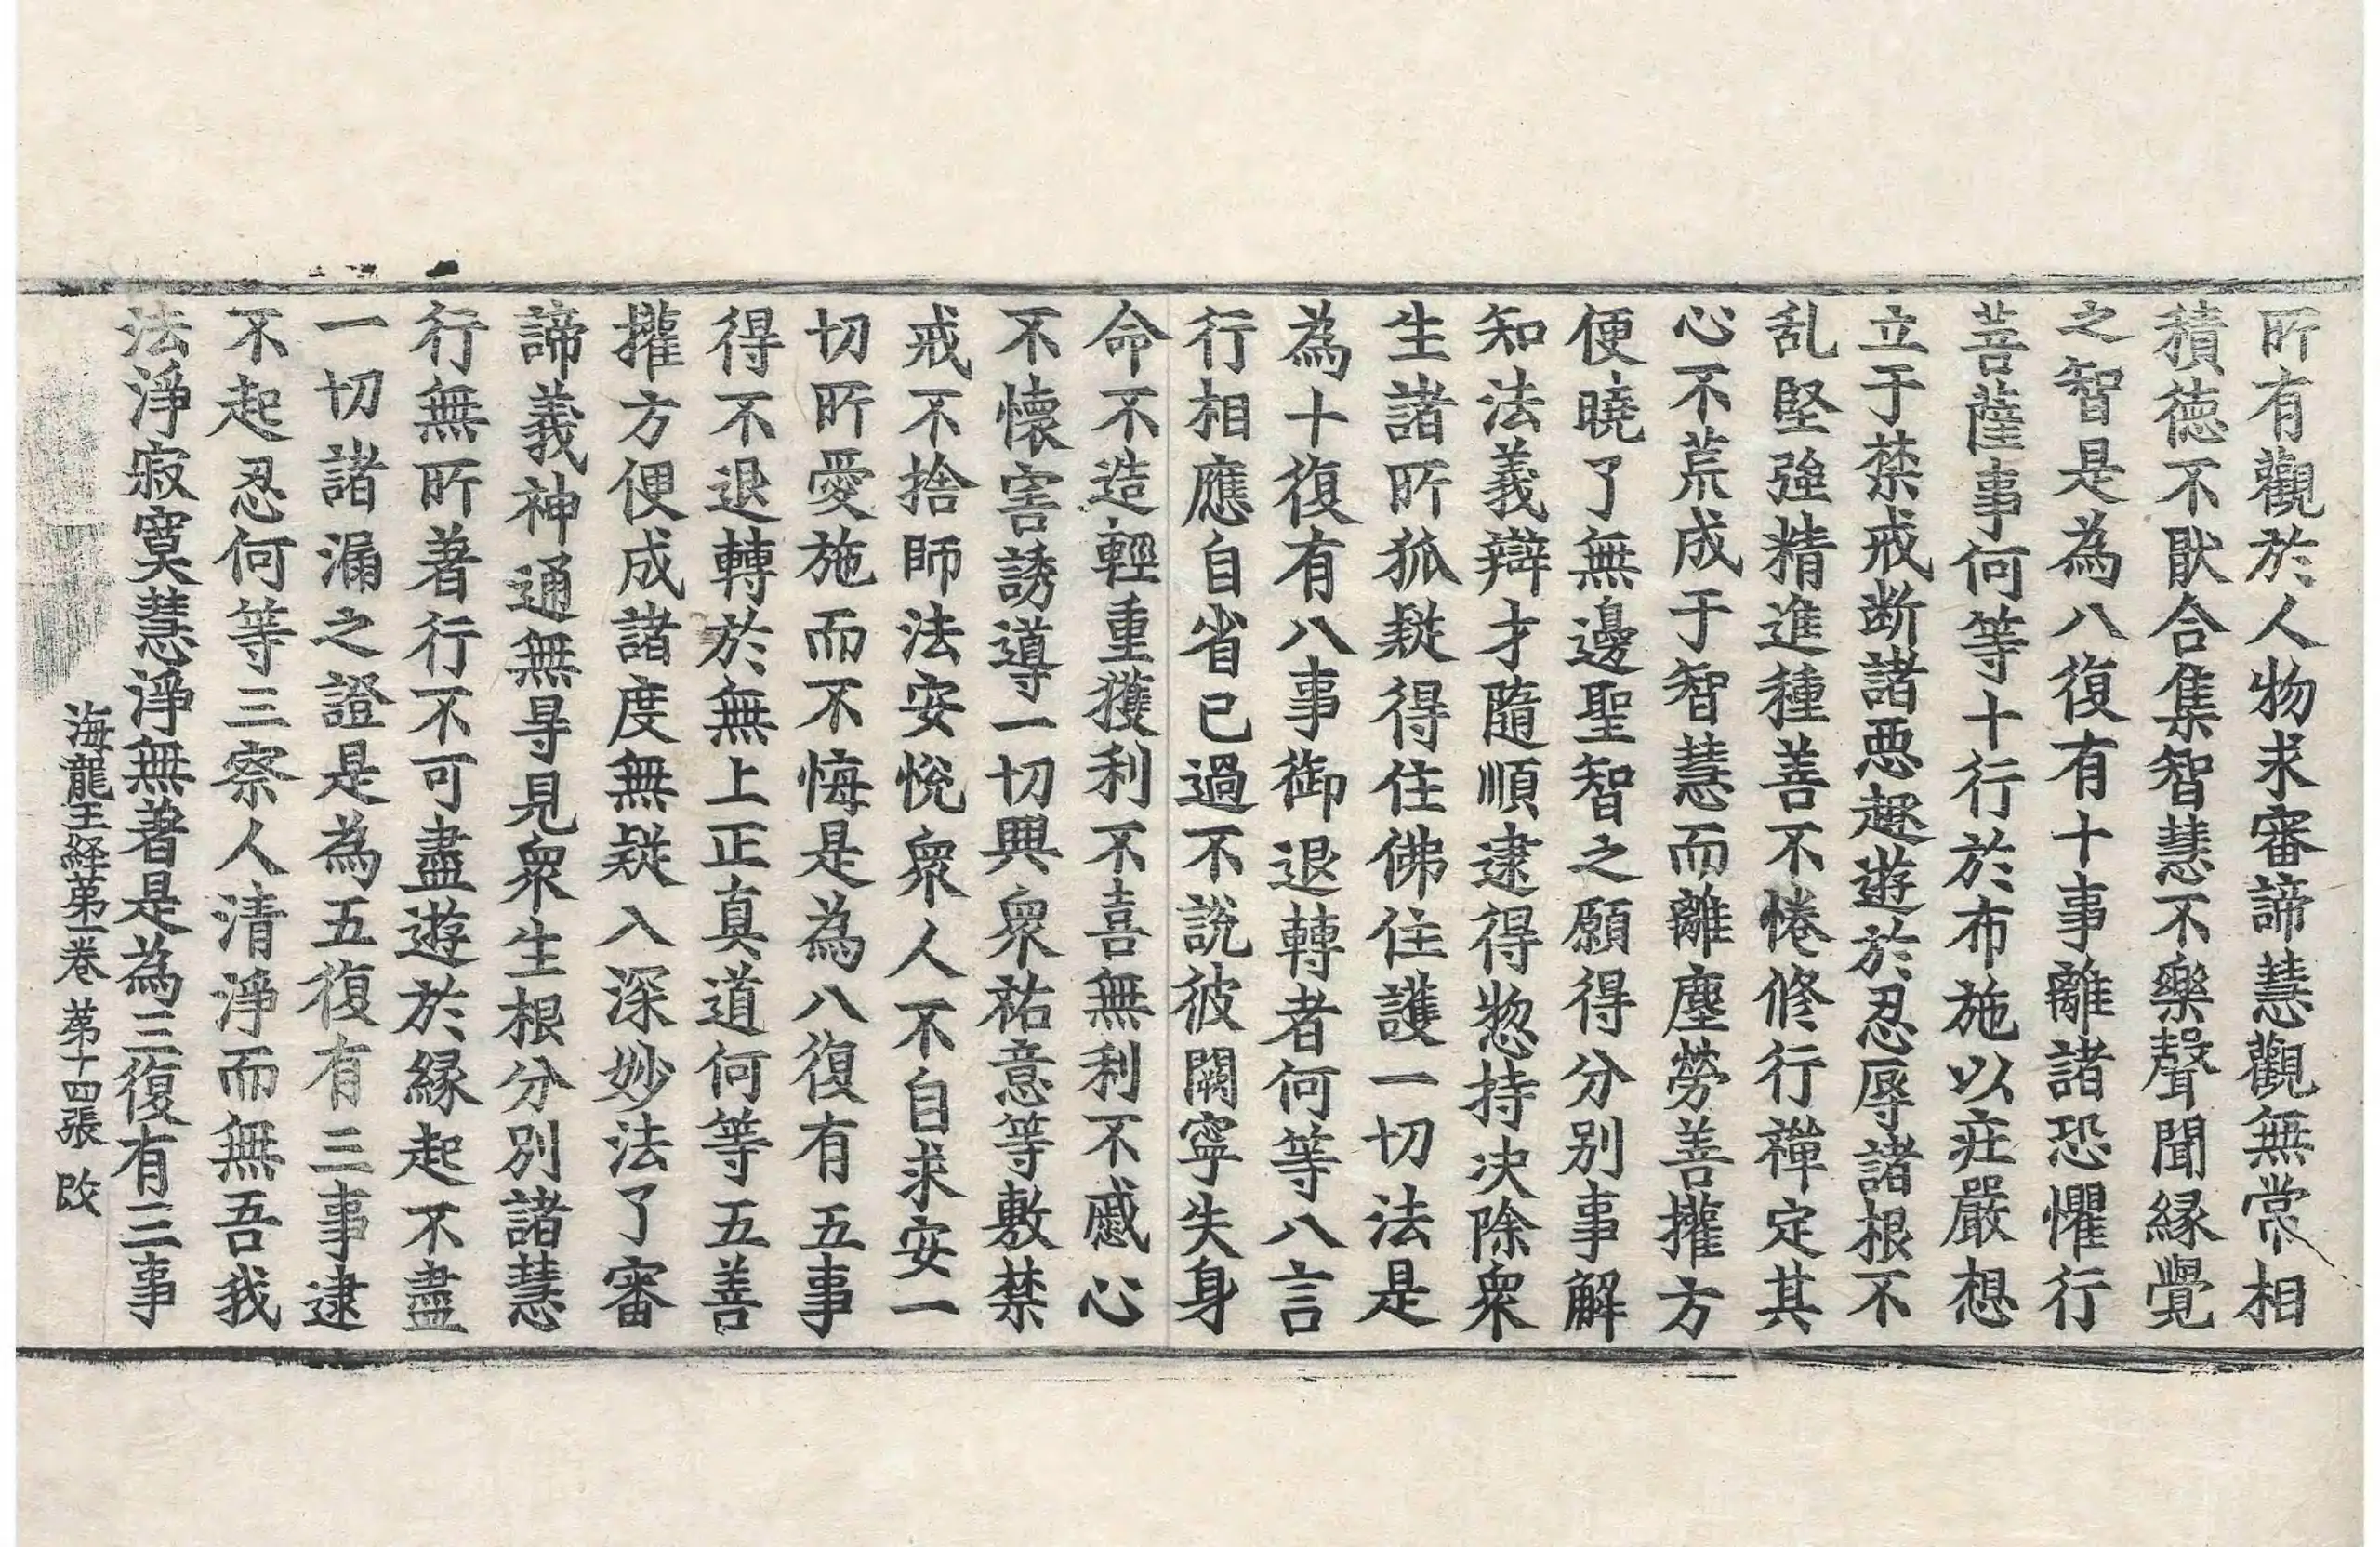 所有觀於人物求審諦慧觀無常相
積德不猒合集智慧不樂聲聞縁覺
之智是為八復有十事離諸恐懼行
菩薩事何等十行於布施以莊嚴想
立于禁戒断諸惡趣遊於忍辱諸根不
乱堅強精進種善不惓修行禪定其
心不荒成于智慧而離塵勞善權方
便曉了無邊聖智之願得分别事解
知法義辯才隨順逮得惣持决除衆
生諸所狐疑得住佛住護一切法是
為十復有八事御退轉者何等八言
行相應自省已過不說彼闕寧失身
命不造輕重獲利不喜無利不慼心
不懷害誘導一切興衆祐意等敷禁
戒不捨師法安悅衆人不自求安一
切所愛施而不悔是為八復有五事
得不退轉於無上正真道何等五善
權方便成諸度無疑入深妙法了審
諦義神通無㝵見衆生根分别諸慧
行無所著行不可盡遊於縁起不盡
一切諸漏之證是為五復有三事逮
不起忍何等三察人清淨而無吾我
法淨寂寞慧淨無著是為三復有三事
海龍王経第一卷 第十四張 改